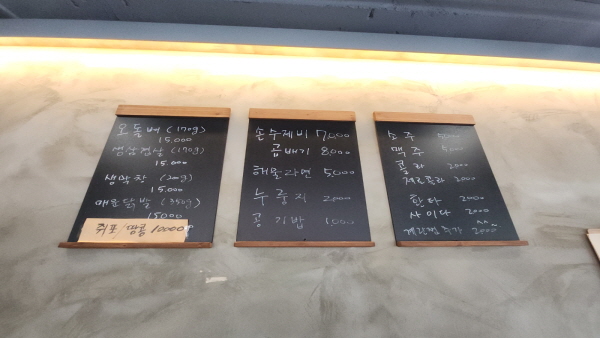 오돌뼈 (170g)
15.000
생삼겹살 (170g)
15.000
생막창 (200g)
15.000
매운닭발 (350g)
15.000
쥐포/땅콩 10000원
손수제비 7,000
곱배기 8,000
해물라면 5,000
누룽지 2000
공기밥 1000
소주 5000
맥주 5000
콜라 2000
제로콜라 2000
환타 2000
사이다 2000
^^
계란찜 추가 2000~